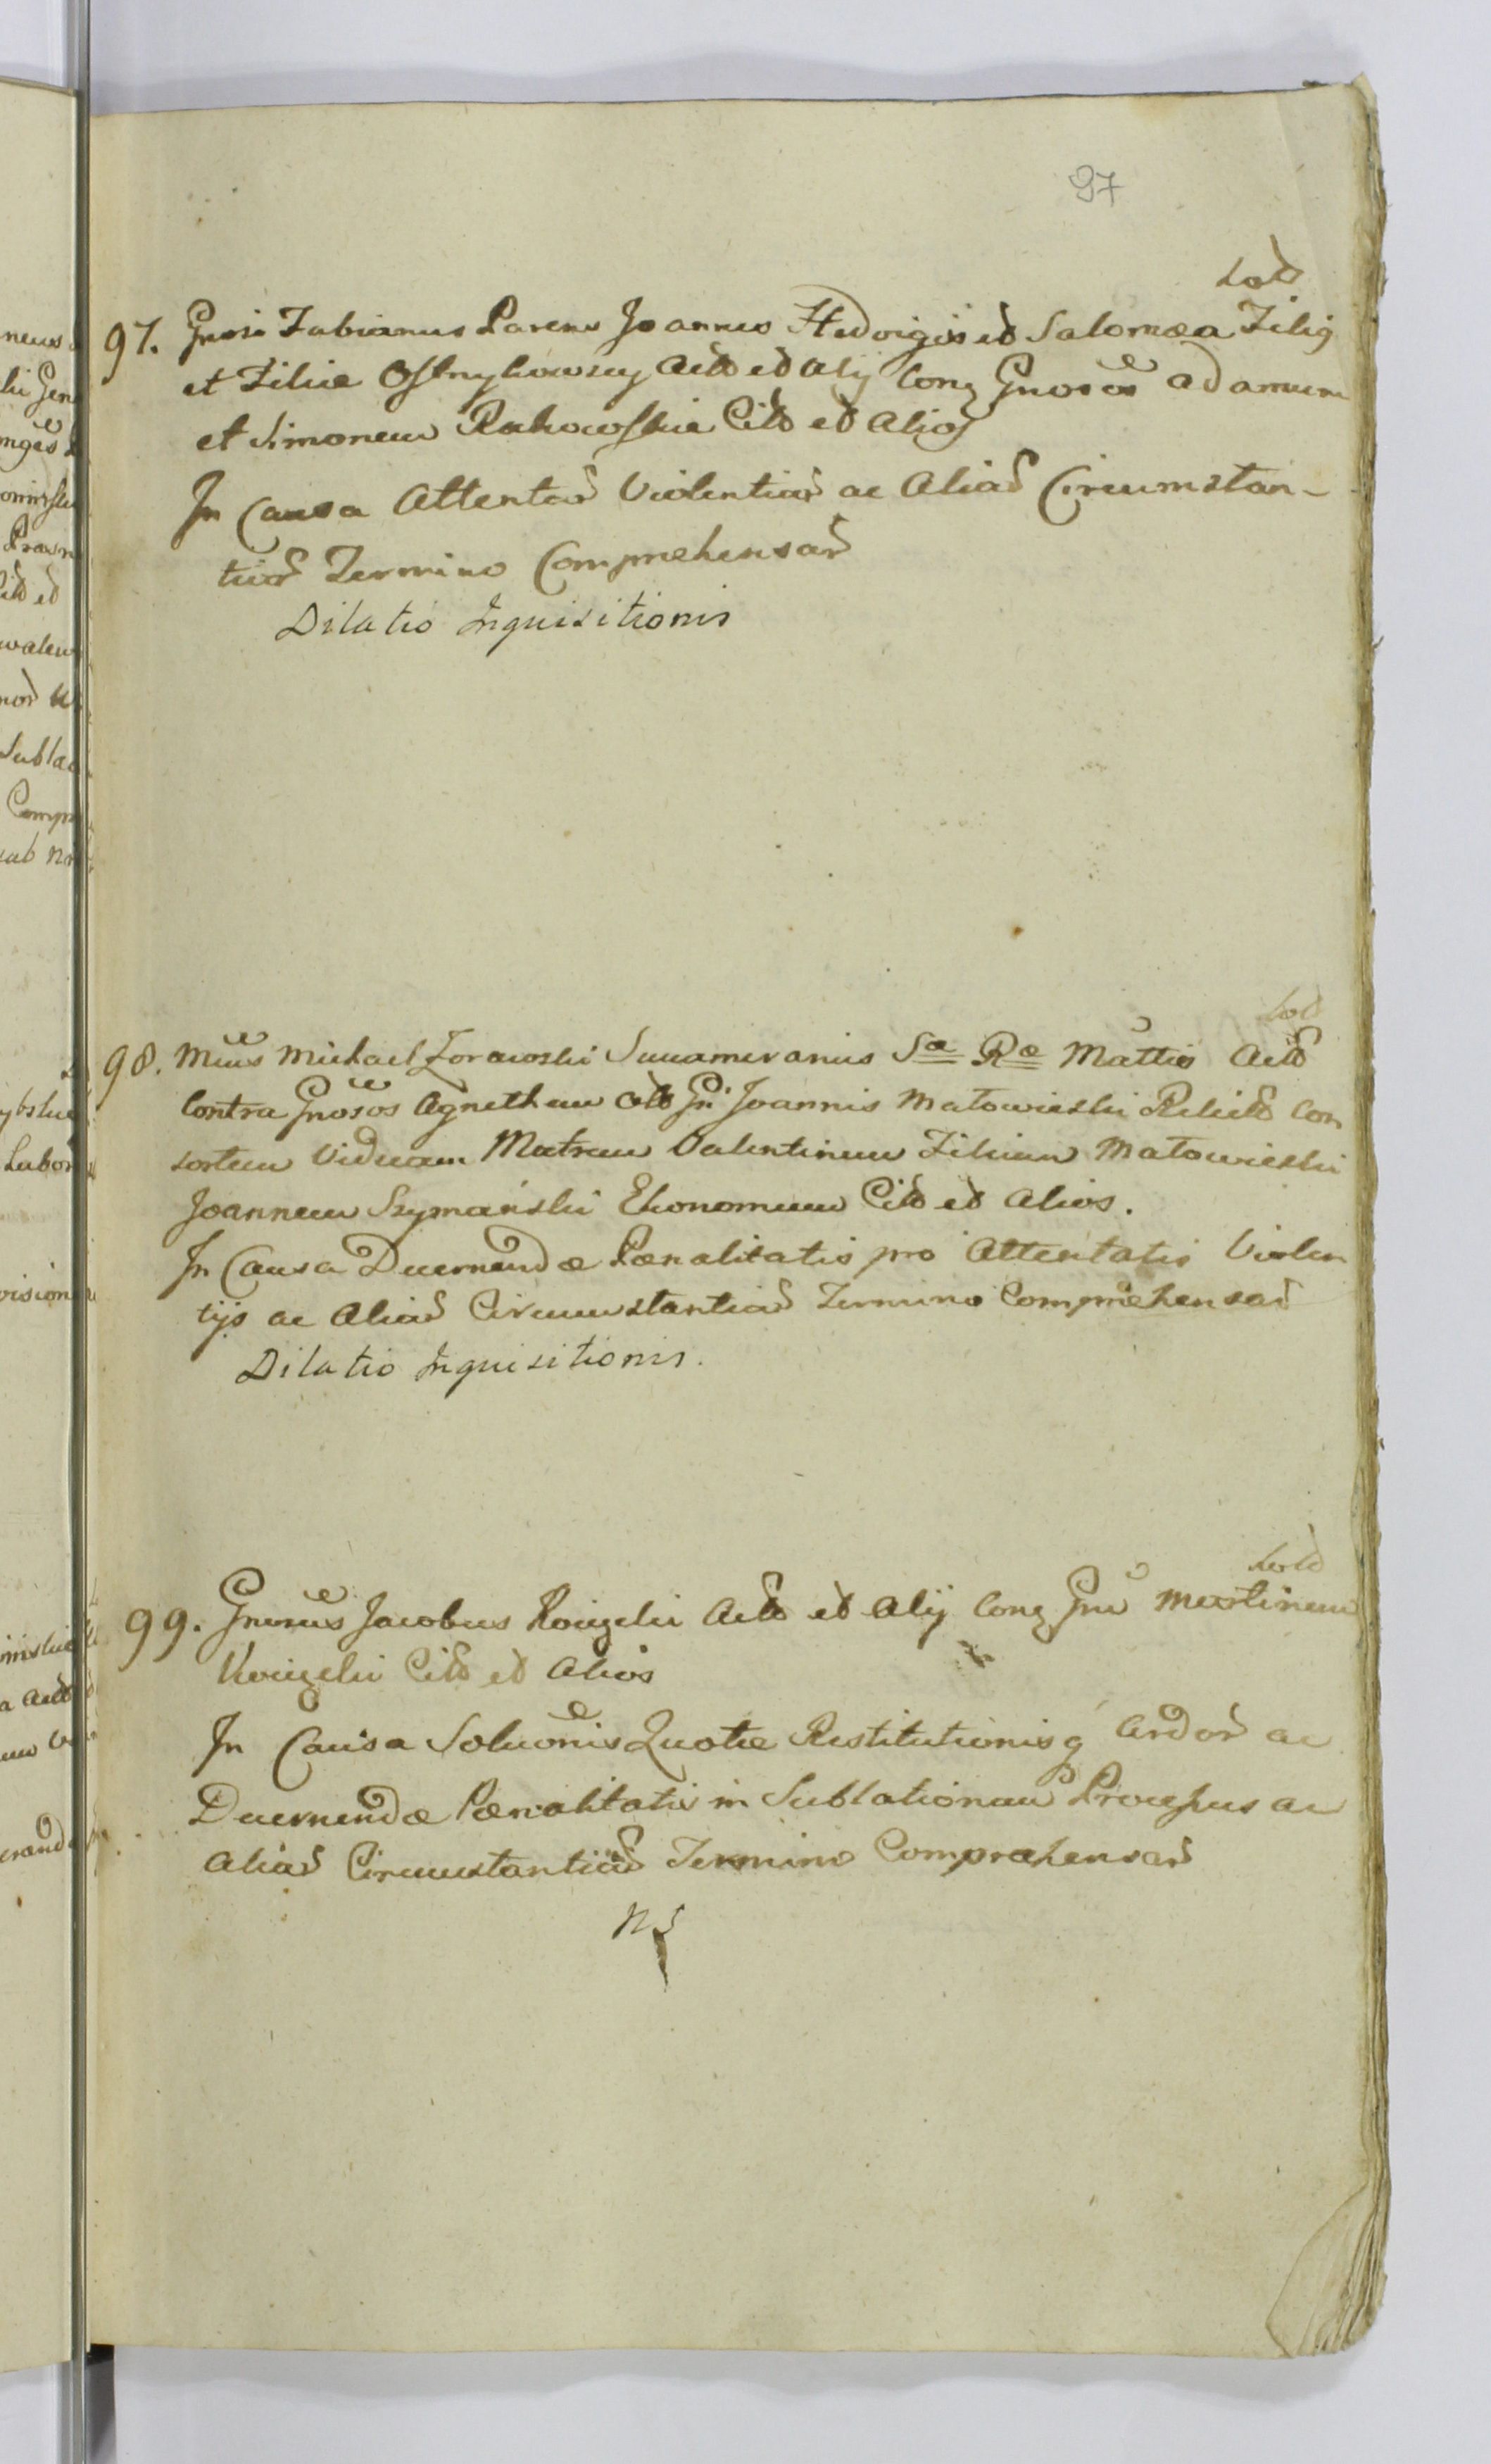 97
97. Gnosi Fabianus Parens Joannes Hedvigis et Salomæa Filiꝫ
et Filiæ Act et Alij Conꝫ Gnosos Adamum
et Simonem Rakowskie Cit et Alios
In Causa Attentar Violentiar ac Aliar Circumstan-
tiar Termino Comprehensar
Dilatio Inquisitionis
98. Mcus Michael Zorawski Succamerarius Sæ Ræ Mattis Act
Contra Gnosos Agnetham Gn Joannis Matowieski Relict Con
sortem Viduam Matrem Valentinum Filium Matowieski
Joannem Szymański Ekonomum Cit et Alios.
In Causa Decernendæ Pænalitatis pro Attentatis Violen
tijs ac Aliar Circumstantiar Termino Compræhensar
Dilatio Inquisitionis.
99. Gnerosus Jacobus Act et Alij Conꝫ Gnu Martinum
Cit et Alios
In Causa Soluonis Quotæ Restitutionisq ac
Decernendæ Pænalitatis in Sublationem Processus ac
Aliar Circumstantiar Termino Compræhensar